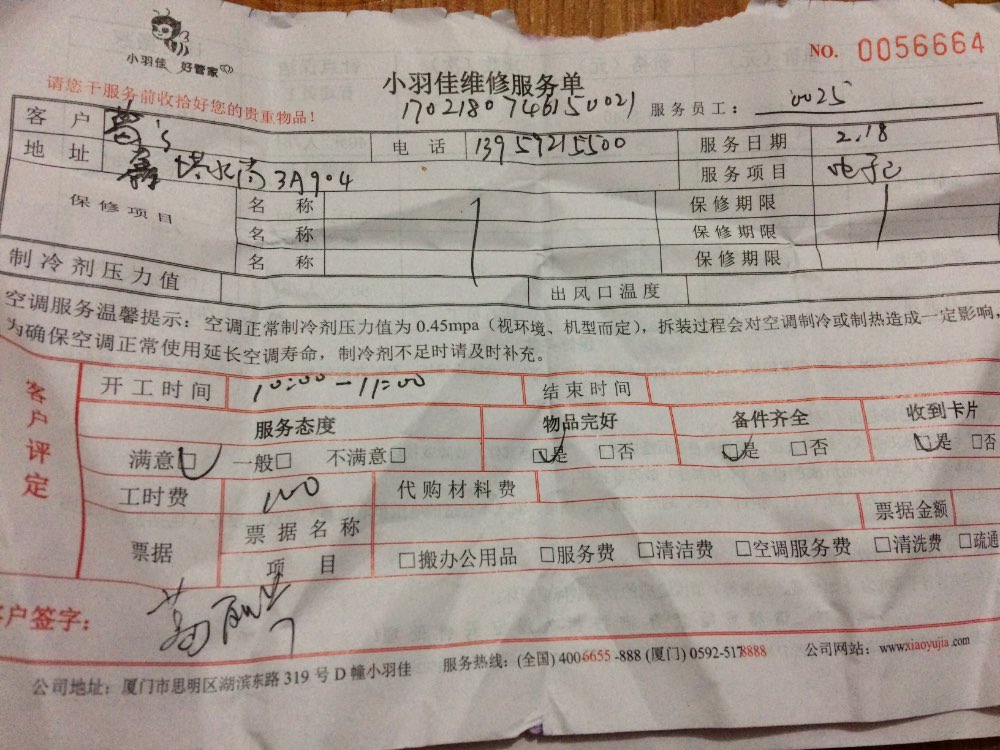 小羽佳 好管家
NO. 0056664
小羽佳维修服务单
请您干服务前收拾好您的贵重物品!
170218074615 0021 服务员工: 0025
客户 电话 13959215500 服务日期 2.18
地址 3A904 服务项目
保修项目 名称 保修期限
名称 保修期限
名称 保修期限
制冷剂压力值 出风口温度
空调服务温馨提示:空调正常制冷剂压力值为 0.45mpa(视环境、机型而定),拆装过程会对空调制冷或制热造成一定影响,
为确保空调正常使用延长空调寿命,制冷剂不足时请及时补充。
客户评定
开工时间 10:00-11:00 结束时间
服务态度 物品完好 备件齐全 收到卡片
满意□ 一般□ 不满意□ □是 □否 □是 □否 □是 □否
工时费 100 代购材料费
票据 票据名称 票据金额
项目 □搬办公用品 □服务费 □清洁费 □空调服务费 □清洗费 □疏通
客户签字:
公司地址:厦门市思明区湖滨东路 319 号 D 幢小羽佳 服务热线:(全国) 4006655 -888 (厦门) 0592-5178888 公司网站:www.xiaoyujia.com